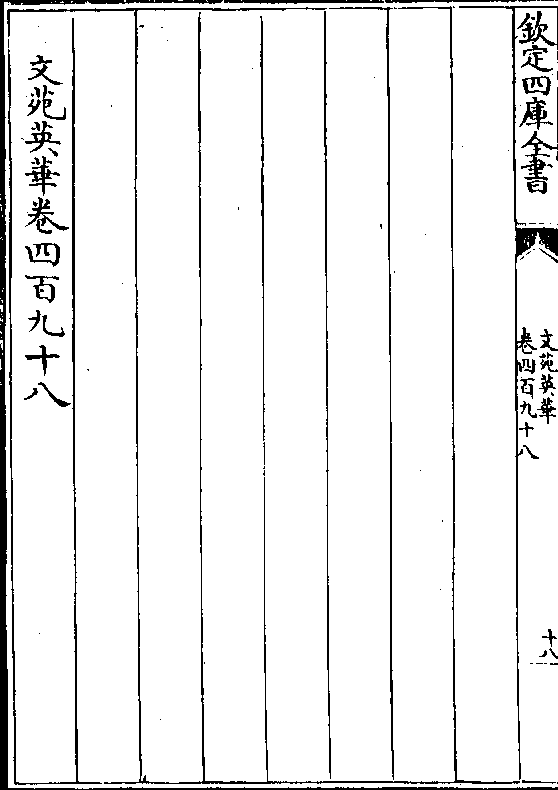 欽定四庫全書
文苑英華
卷四百九十八
十八
文苑英華卷四百九十八